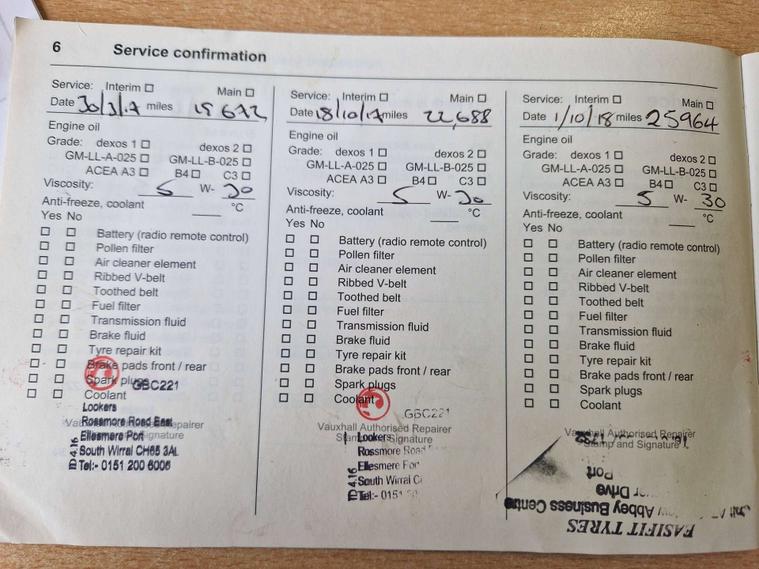 6 Service confirmation
Service: Interim Main
Date 30/3/17 miles 19672
Engine oil
Grade: dexos 1 dexos 2
GM-LL-A-025 GM-LL-B-025
ACEA A3 B4 C3
Viscosity: 5 W- 30
Anti-freeze, coolant °C
Yes No
Battery (radio remote control)
Pollen filter
Air cleaner element
Ribbed V-belt
Toothed belt
Fuel filter
Transmission fluid
Brake fluid
Tyre repair kit
Brake pads front / rear
Spark plugs
GBC221
Coolant
Lookers
Vauxhall Authorised Repairer
Rossmore Road East
Ellesmere Port
Signature
South Wirral CH65 3AL
Tel:- 0151 200 6006
ID 4.16
Service: Interim Main
Date 18/10/17 miles 22,688
Engine oil
Grade: dexos 1 dexos 2
GM-LL-A-025 GM-LL-B-025
ACEA A3 B4 C3
Viscosity: 5 W- 30
Anti-freeze, coolant °C
Yes No
Battery (radio remote control)
Pollen filter
Air cleaner element
Ribbed V-belt
Toothed belt
Fuel filter
Transmission fluid
Brake fluid
Tyre repair kit
Brake pads front / rear
Spark plugs
Coolant
GBC221
Vauxhall Authorised Repairer
Signature
Lookers
Rossmore Road
Ellesmere Por
South Wirral C
Tel:- 0151
ID 4.16
Service: Interim Main
Date 1/10/18 miles 25964
Engine oil
Grade: dexos 1 dexos 2
GM-LL-A-025 GM-LL-B-025
ACEA A3 B4 C3
Viscosity: 5 W- 30
Anti-freeze, coolant °C
Yes No
Battery (radio remote control)
Pollen filter
Air cleaner element
Ribbed V-belt
Toothed belt
Fuel filter
Transmission fluid
Brake fluid
Tyre repair kit
Brake pads front / rear
Spark plugs
Coolant
Vauxhall Authorised Repairer
Stamp and Signature
EASIFIT TYRES
Abbey Business Centre
Drive
Port